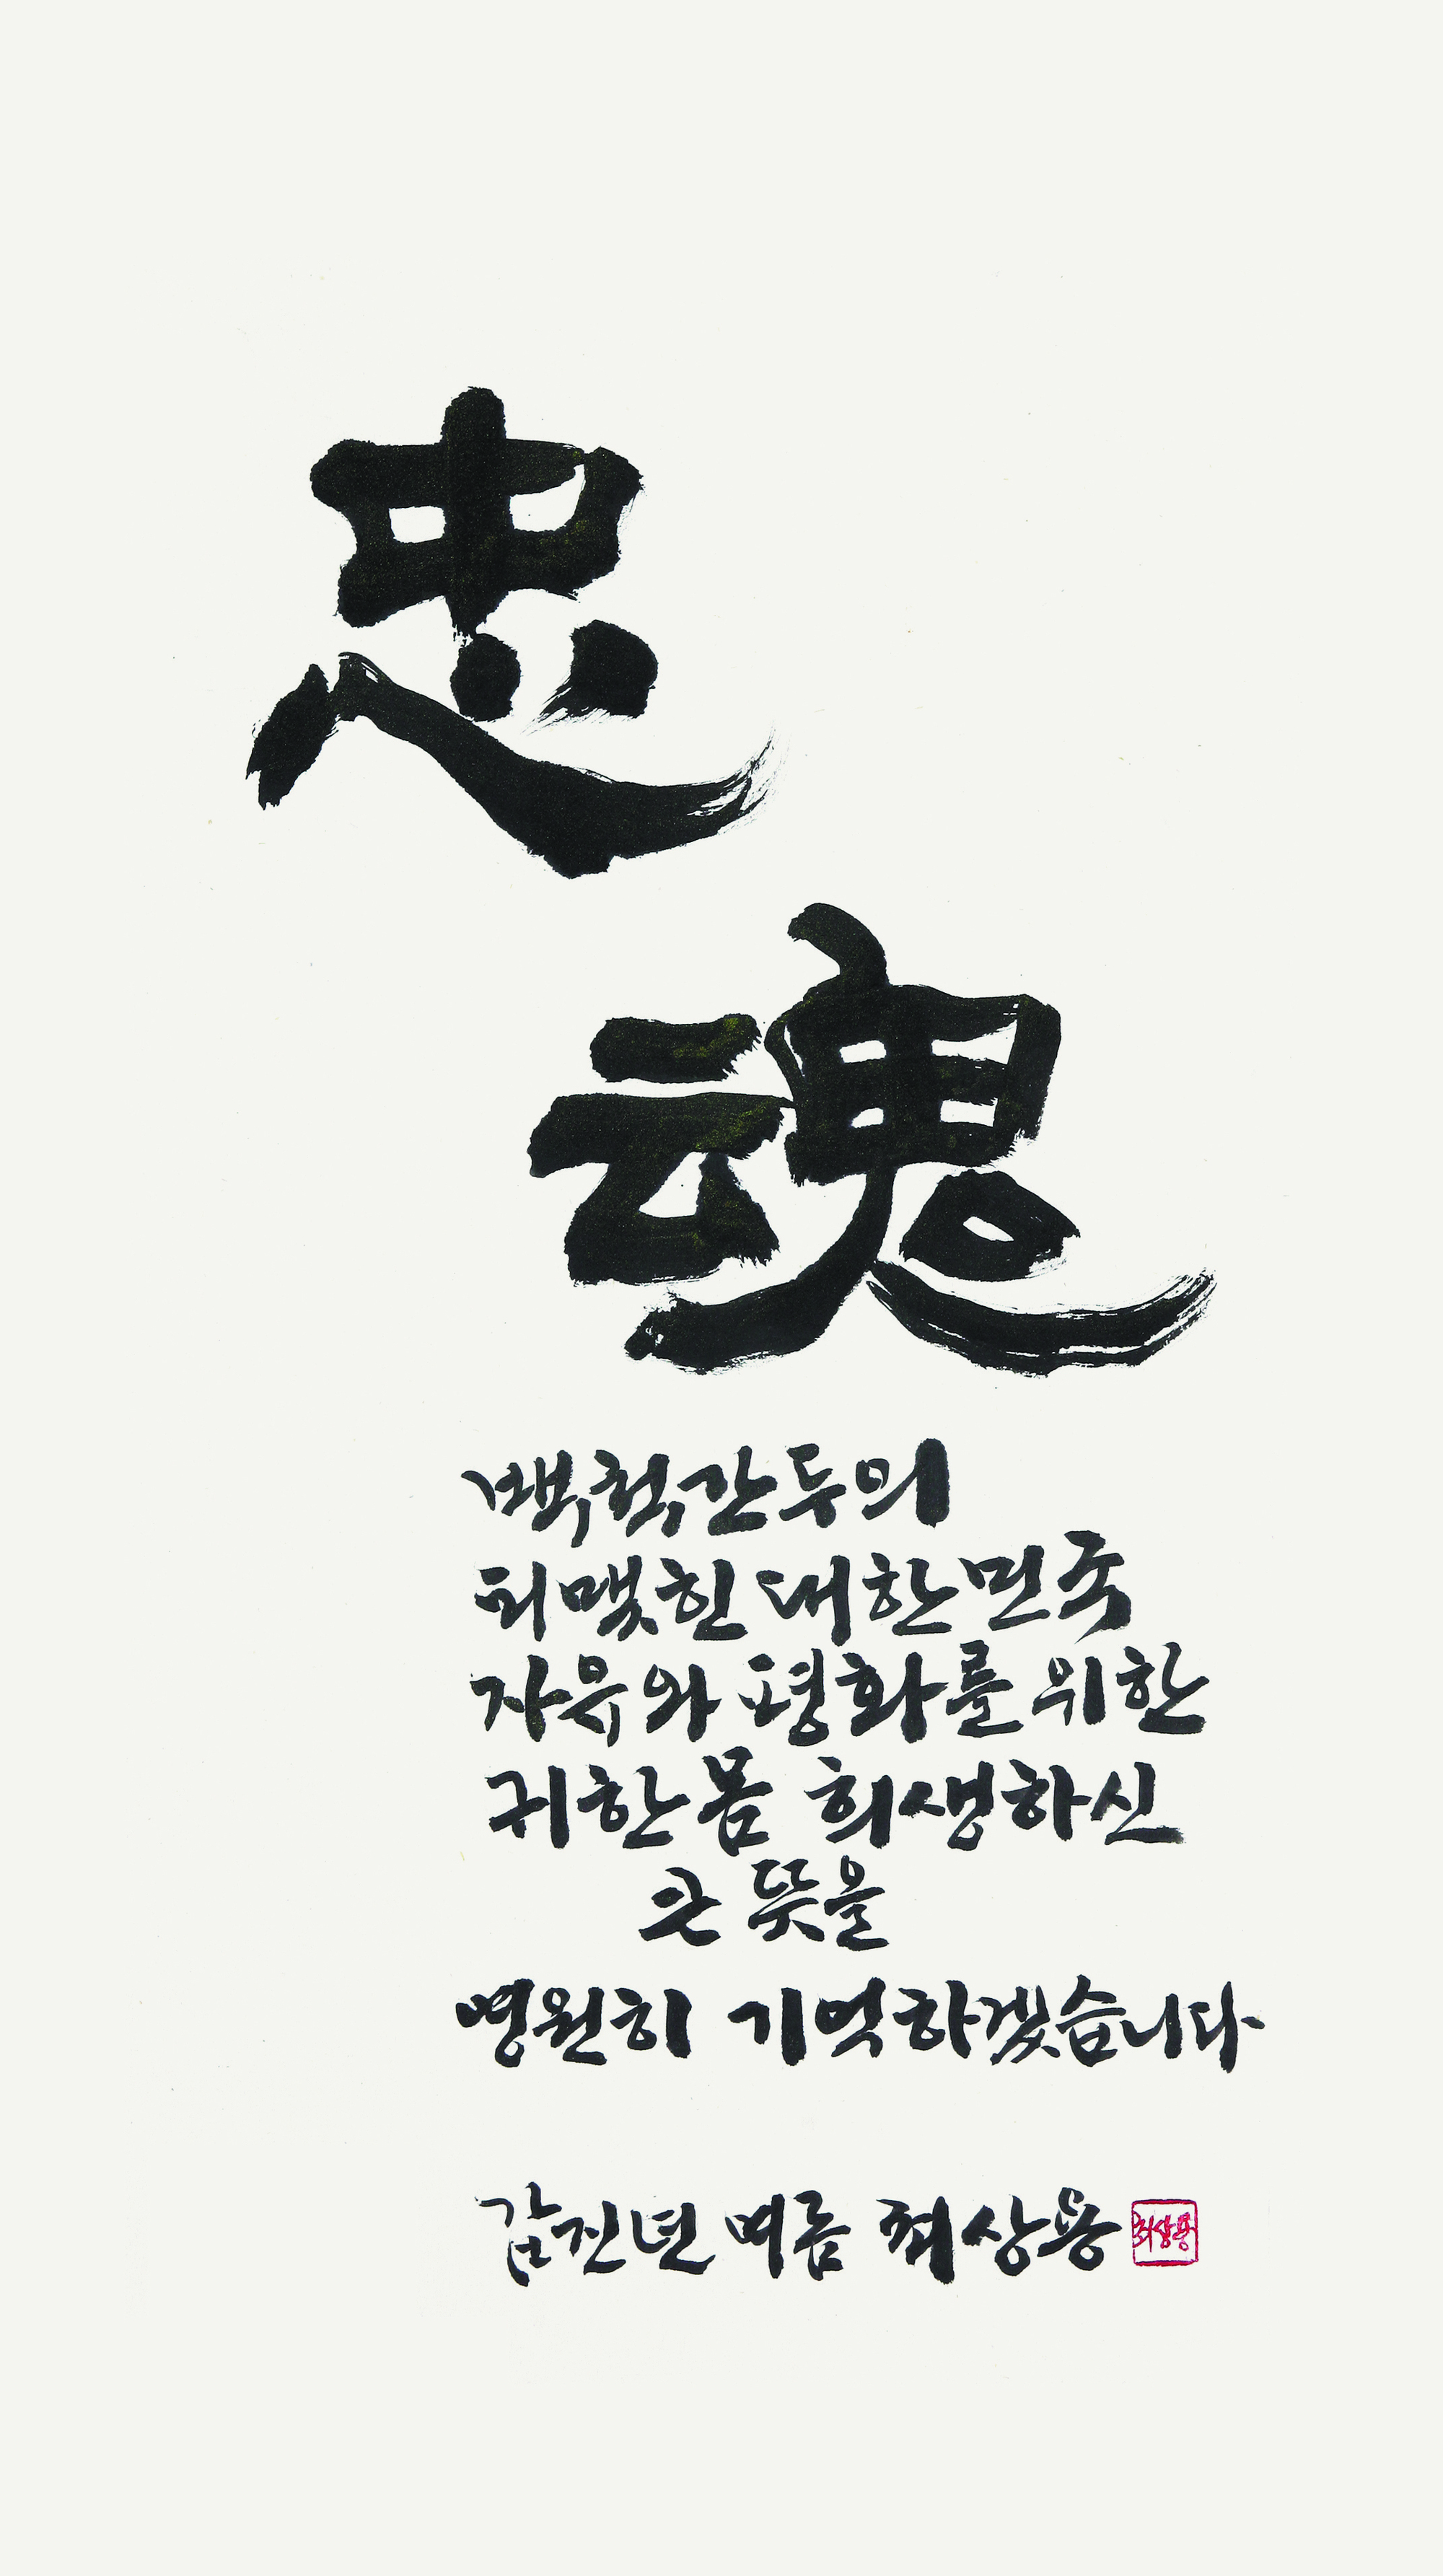 忠
魂
백척간두의
피맺힌 대한민국
자유와 평화를 위한
귀한 몸 희생하신
큰 뜻을
영원히 기억하겠습니다
갑진년 여름 최상용
최상용